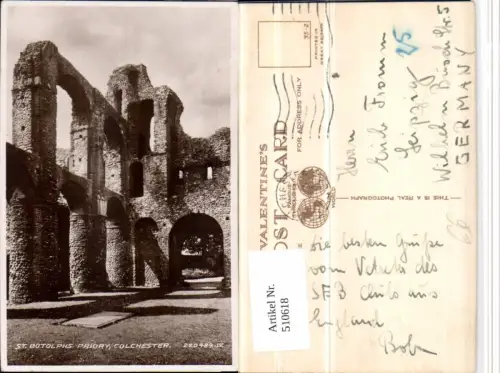 ST. BOTOLPHS PRIORY, COLCHESTER.
220489 JV.
VALENTINE'S
POST CARD
FOR ADDRESS ONLY
PRINTED IN
GREAT BRITAIN
THIS IS A REAL PHOTOGRAPH
Artikel Nr.
510618
25
Herrn
Erich Fromm
Leipzig
Wilhelm Busch Str. 5
GERMANY
die besten Grüße
vom
des
Clubs aus
England
Bob